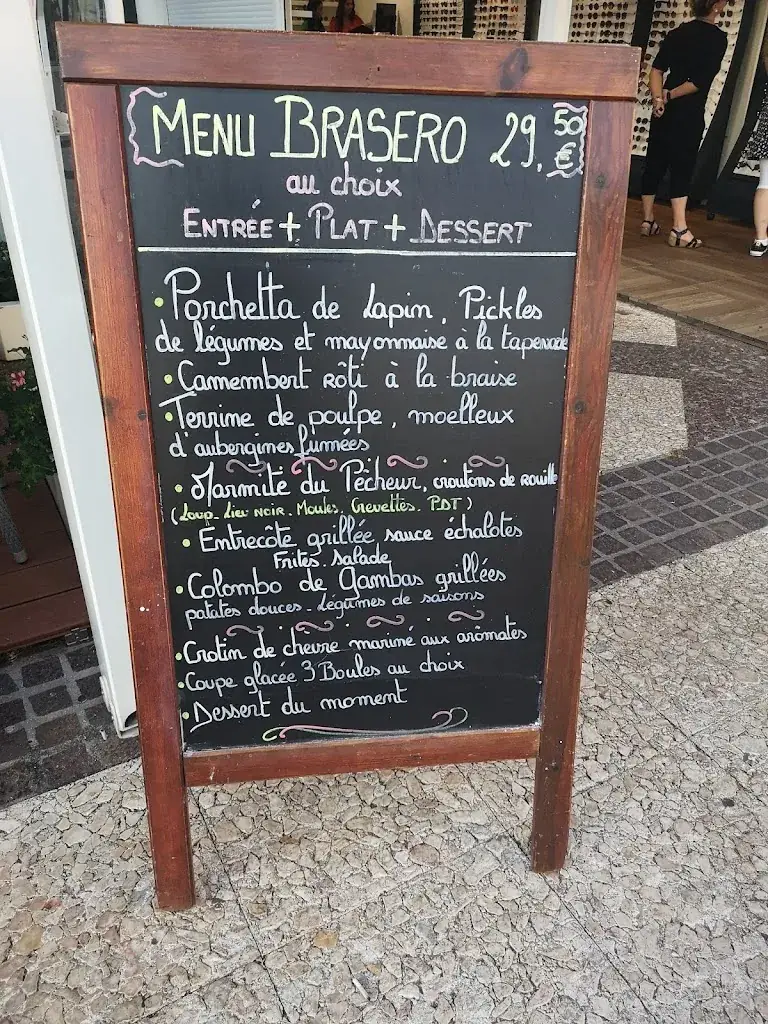 MENU BRASERO 29,50 €
au choix
ENTRÉE + PLAT + DESSERT
• Porchetta de Lapin, Pickles
de légumes et mayonnaise à la tapenade
• Camembert rôti à la braise
• Terrine de poulpe, moelleux
d'aubergines fumées
• Marmite du Pêcheur, croutons de rouille
(Loup. Lieu noir. Moules. Crevettes. PDT)
• Entrecôte grillée sauce échalotes
Frites. Salade
• Colombo de Gambas grillées
patates douces - Légumes de saisons
• Crotin de chevre mariné aux arômates
• Coupe glacée 3 Boules au choix
• Dessert du moment